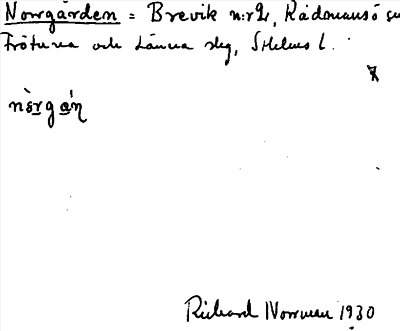 Norrgården = Brevik n:r 2, Rådmansö sn
Frötuna och Länna slg, Sthlms l.
nòrgá̀ṇ
Richard Norrman 1930